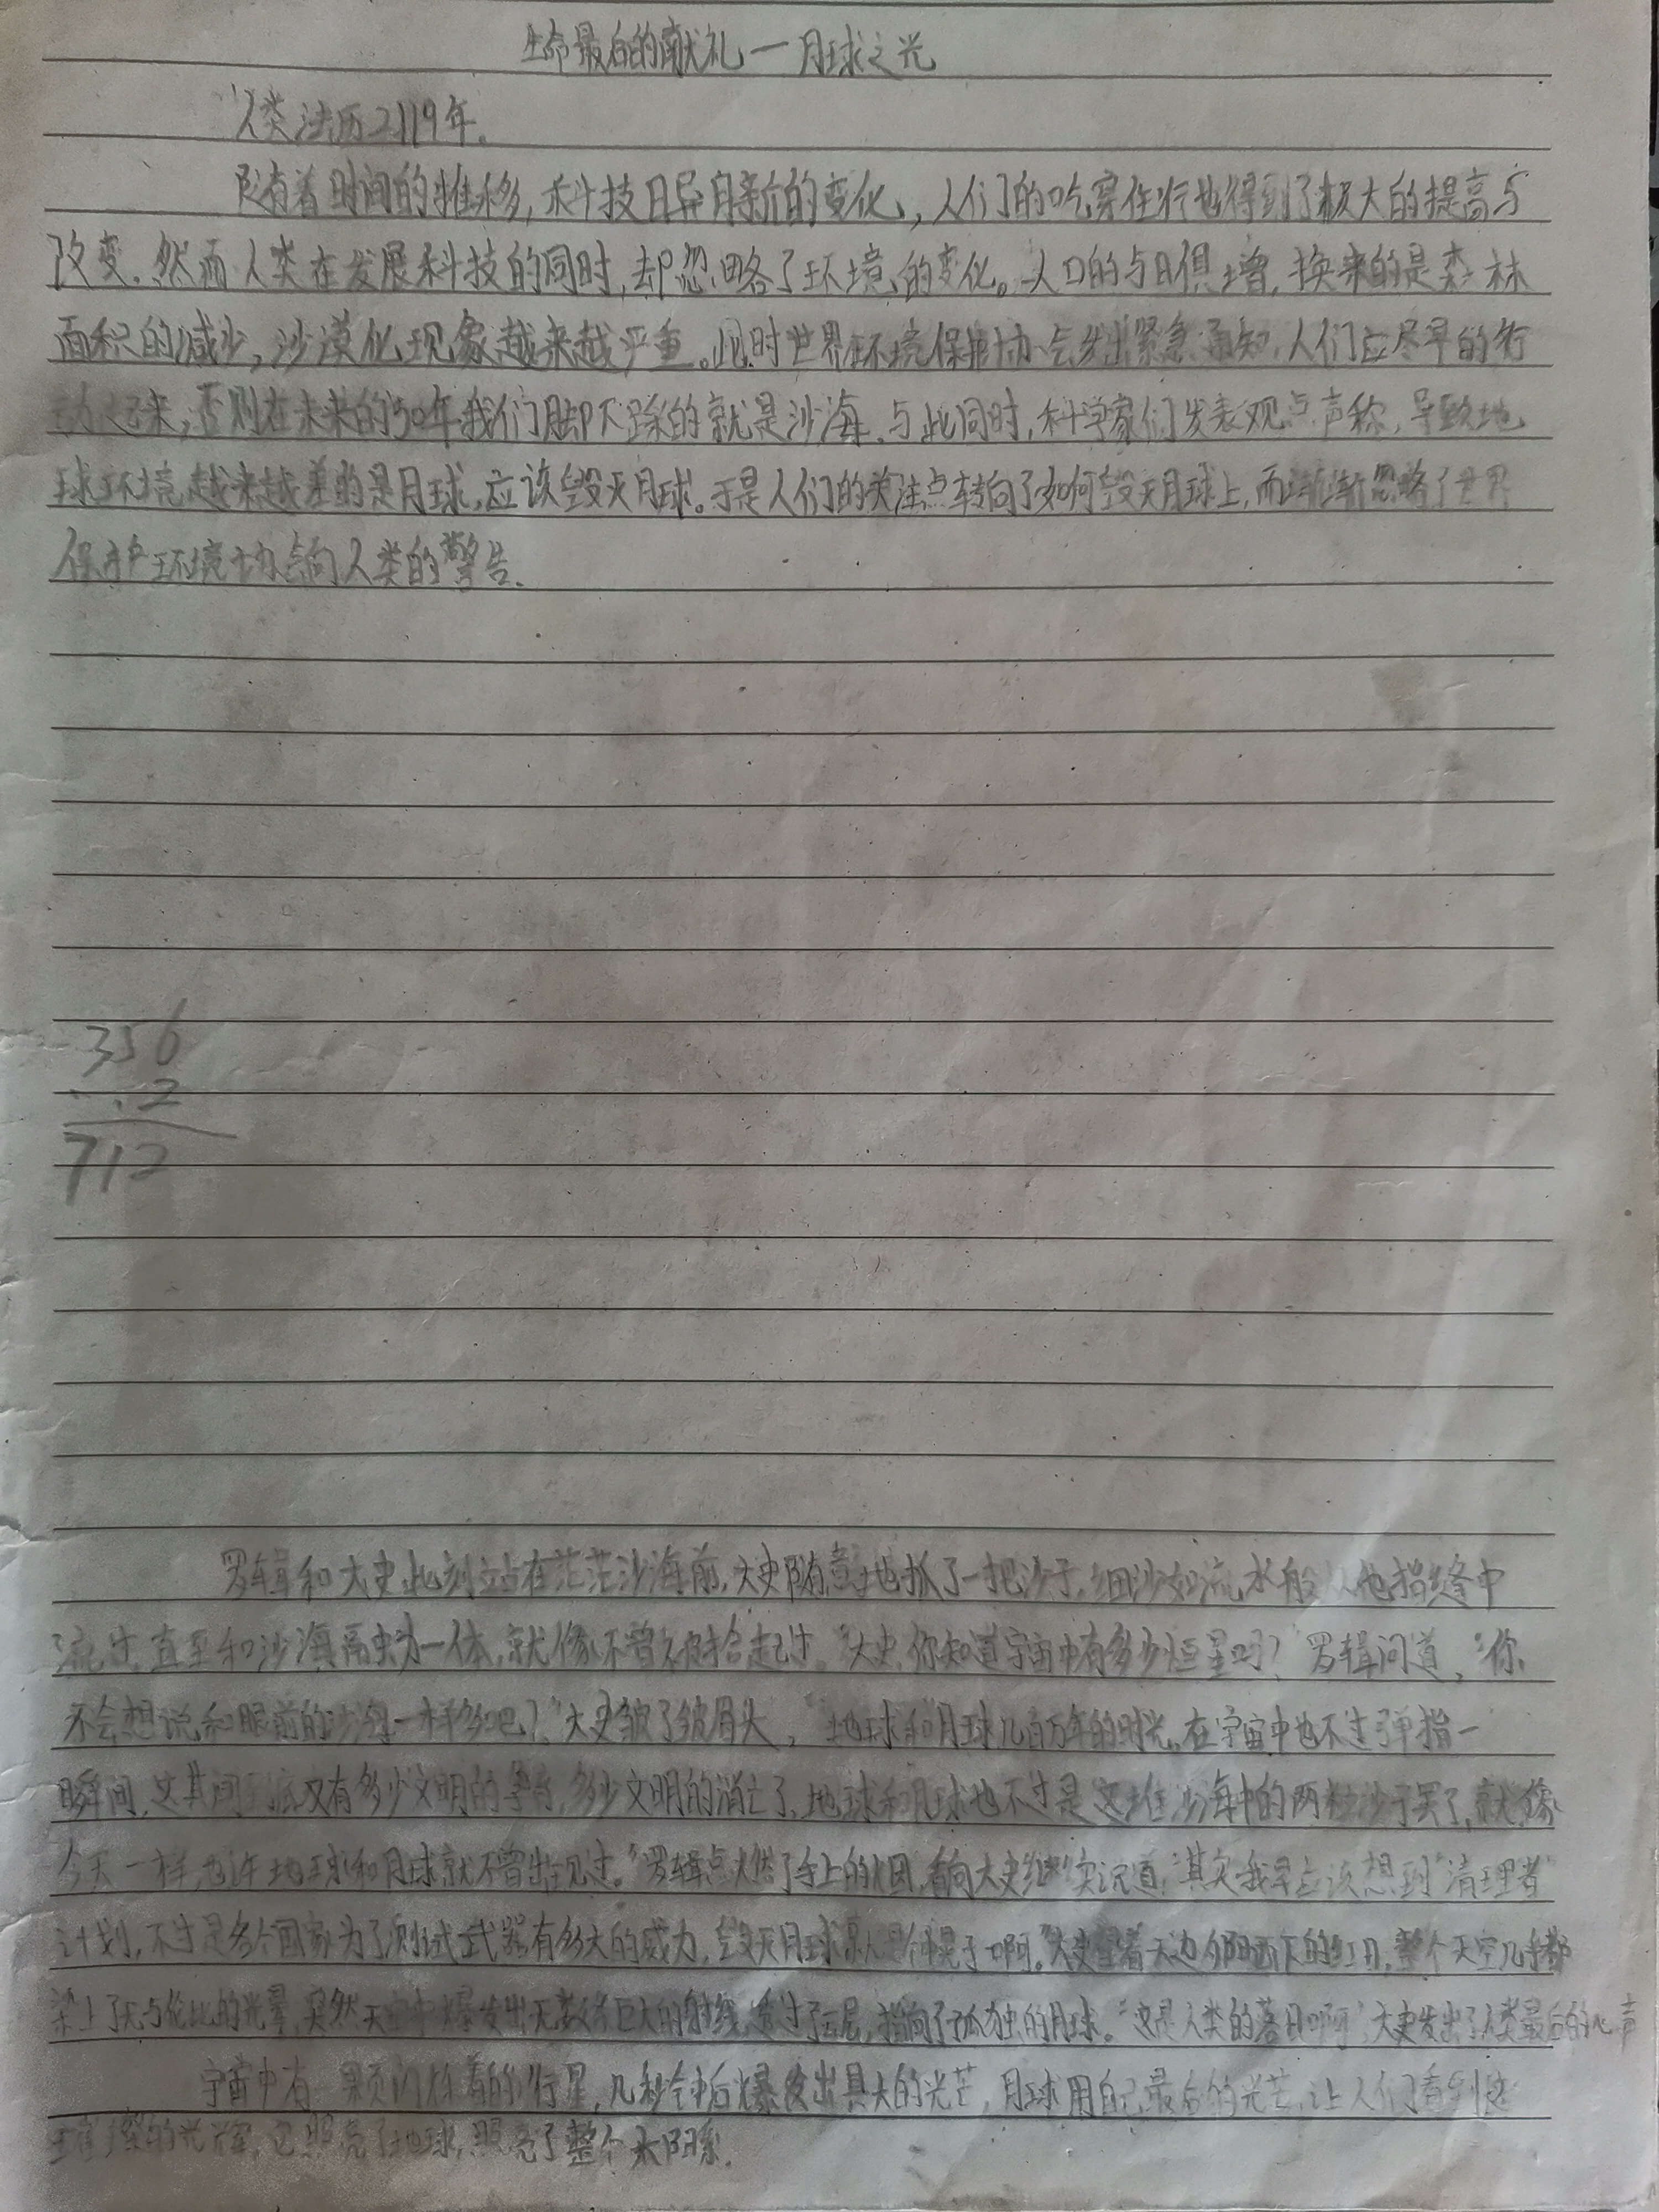 生命最后的献礼一月球之光
人类法历2119年.
随着时间的推移,科技日异月新的变化,人们的吃穿住行也得到了极大的提高与
改变.然而人类在发展科技的同时,却忽略了环境的变化。人口的与日俱增,换来的是森林
面积的减少,沙漠化现象越来越严重。此时世界环境保护协会发出紧急通知,人们应尽早的行
动起来,否则在未来的50年我们脚下踩的就是沙海.与此同时,科学家们发表观点声称,导致地
球环境越来越差的是月球,应该毁灭月球。于是人们的关注点转向了如何毁灭月球上,而渐渐忽略了世界
保护环境协会向人类的警告.
356
2
712
罗辑和大史此刻站在茫茫沙海前,大史随意地抓了一把沙子,细沙如流水般从他指缝中
流过,直至和沙海融为一体,就像不曾被拾起过。"大史,你知道宇宙中有多少恒星吗?"罗辑问道,"你
不会想说和眼前的沙海一样多吧?"大史皱了皱眉头,"地球和月球几百万年的时光,在宇宙中也不过弹指一
瞬间,这其间到底又有多少文明的,多少文明的消亡了,地球和月球也不过是这堆沙海中的两粒沙子罢了,就像
今天一样,也许地球和月球就不曾出现过。"罗辑点燃了手上的烟,看向大史继续说道:"其实我早应该想到"清理者"
计划,不过是各个国家为了测试武器有多大的威力,毁灭月球就是个幌子啊。"大史望着天边夕阳西下的红日,整个天空几乎都
染上了无与伦比的光晕,突然天空中爆发出无数条巨大的射线,透过了云层,指向了孤独的月球。"这是人类的落日啊"大史发出了人类最后的心声
宇宙中有一颗闪烁着的行星,几秒钟后爆发出具大的光芒,月球用自己最后的光芒,让人们看到这
璀璨的光辉,它照亮了地球,照亮了整个太阳系.